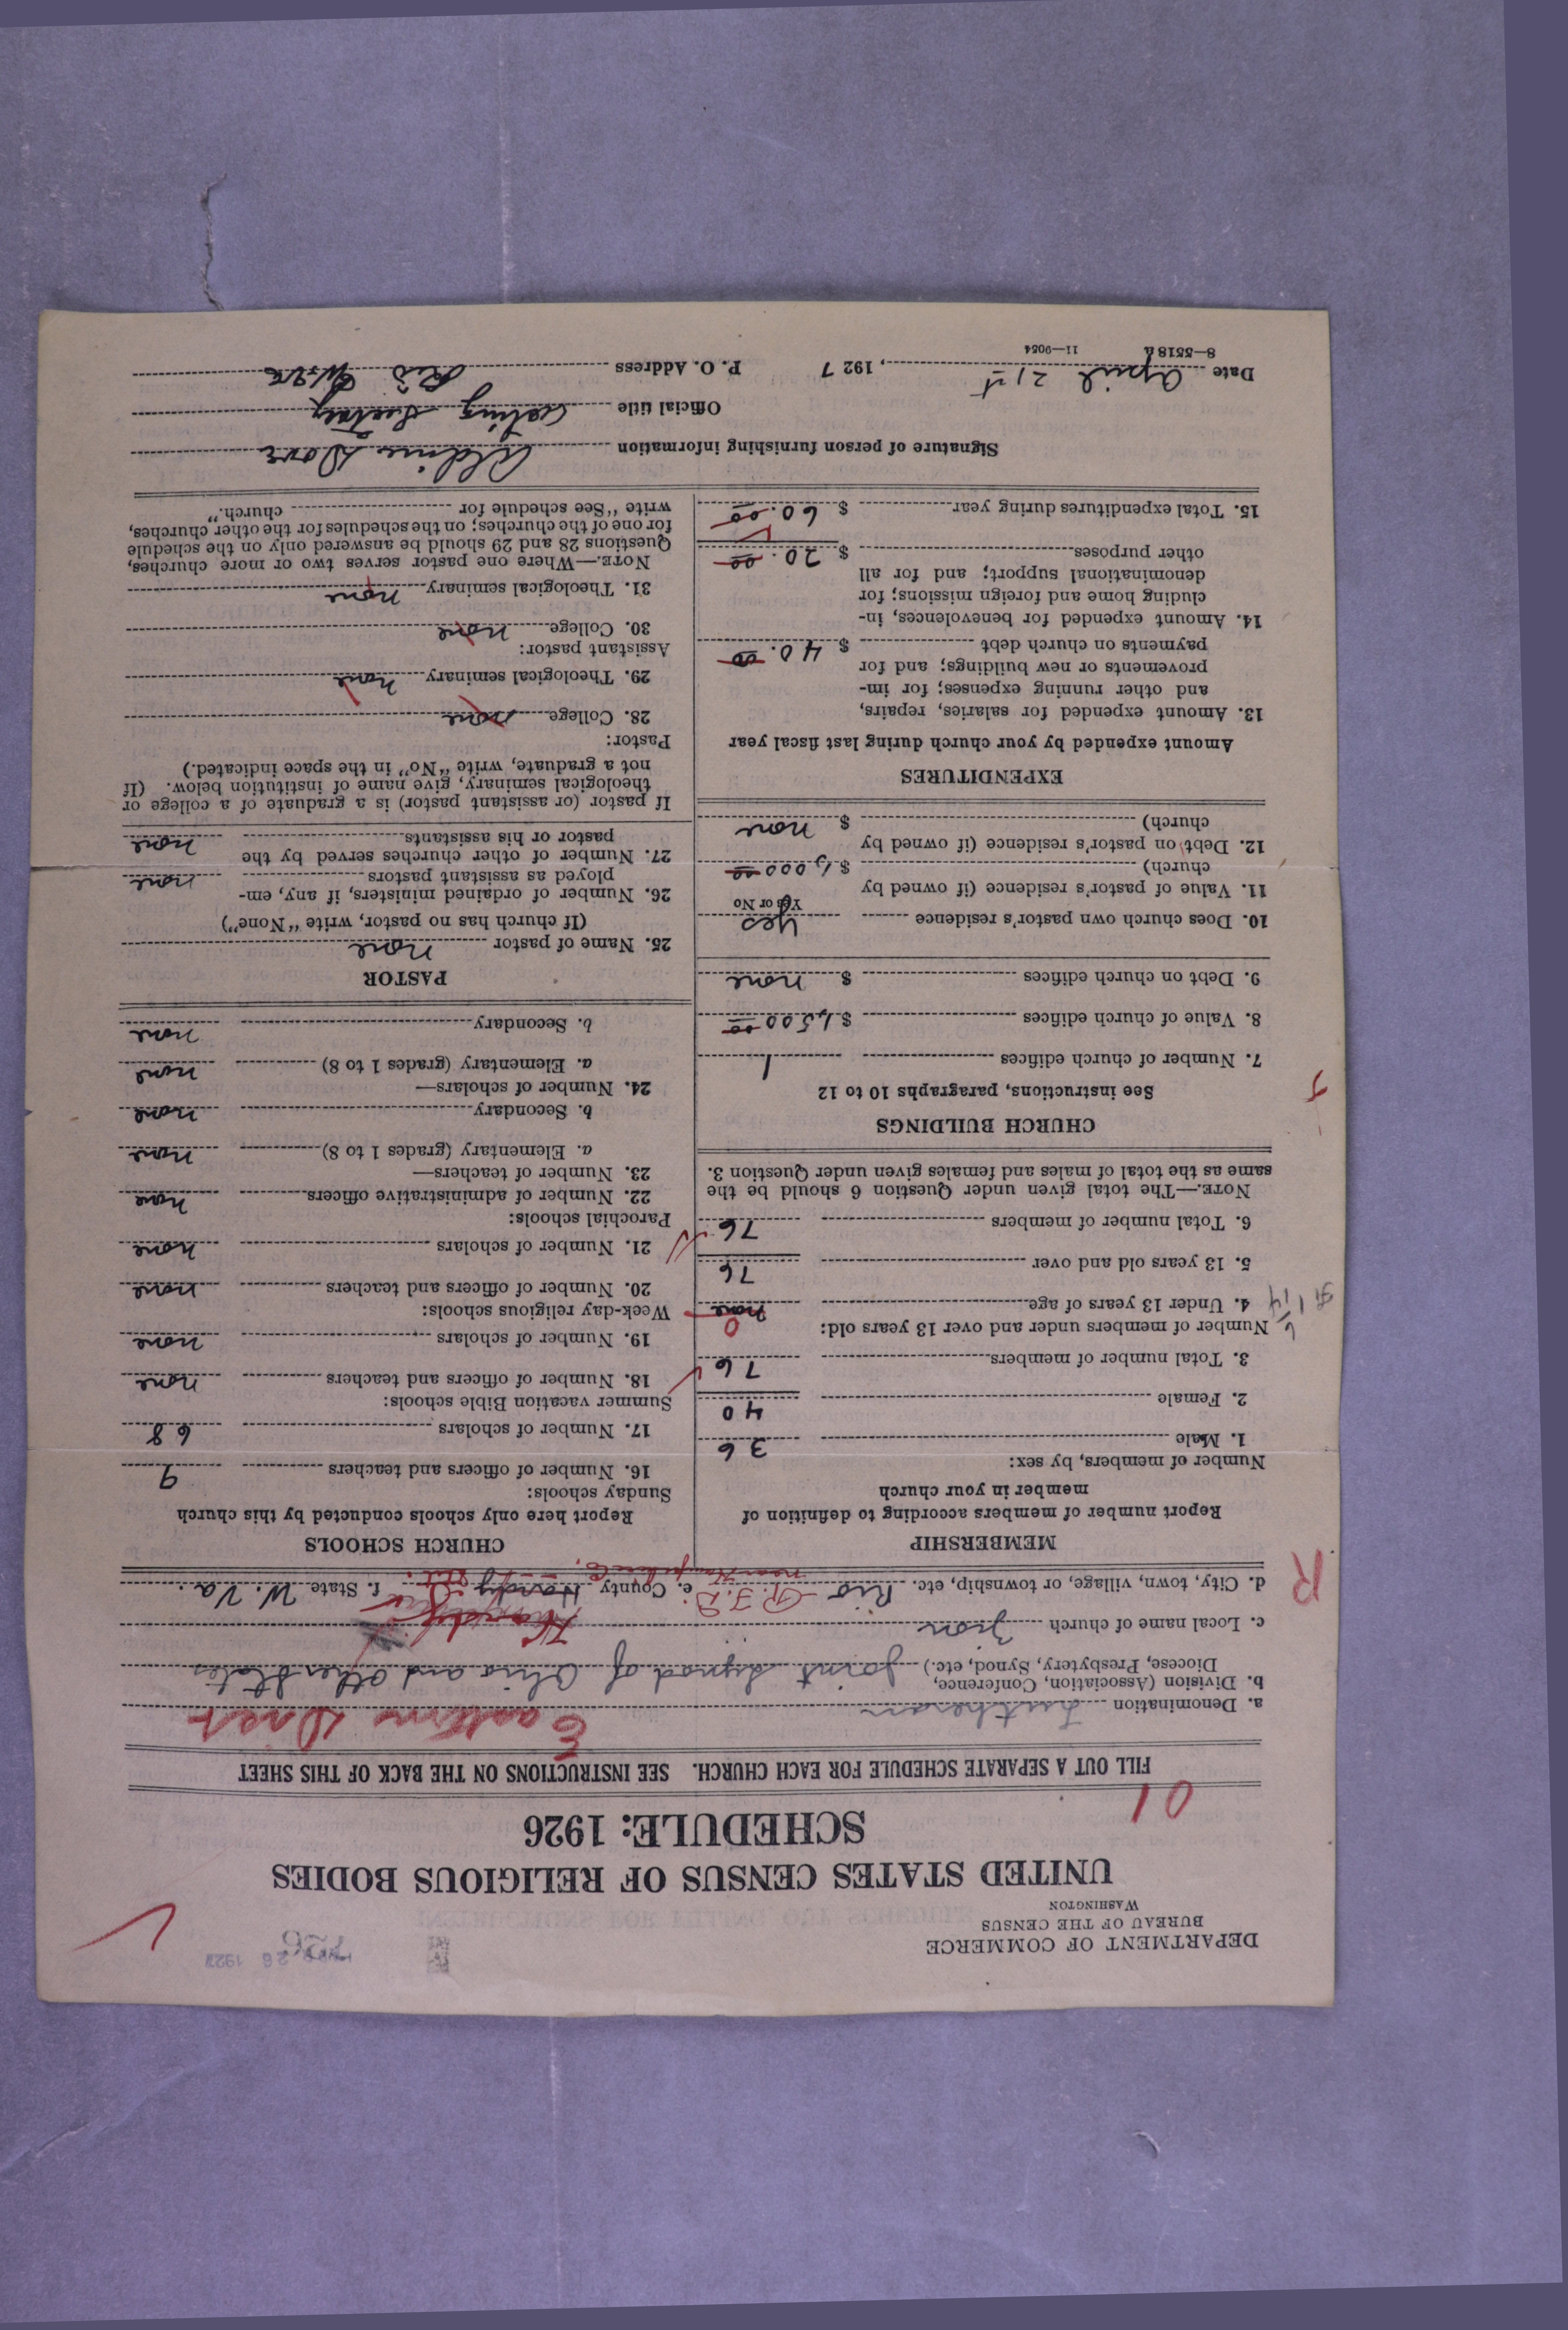 DEPARTMENT OF COMMERCE
BUREAU OF THE CENSUS
WASHINGTON
UNITED STATES CENSUS OF RELIGIOUS BODIES
SCHEDULE: 1926
01
FILL OUT A SEPARATE SCHEDULE FOR EACH CHURCH. SEE INSTRUCTIONS ON THE BACK OF THIS SHEET
a. Denomination Lutheran
Eastern Dist
b. Division (Association, Conference,
Diocese, Presbytery, Synod, etc.) Joint Synod of Ohio and other States
c. Local name of church Zion
Hardy
d. City, town, village, or township, etc. Rio R.F.D. e. County Hardy f. State W. Va.
R
MEMBERSHIP
Report number of members according to definition of
member in your church
Number of members, by sex:
1. Male 36
2. Female 40
3. Total number of members 76
Number of members under and over 13 years old:
4. Under 13 years of age none 0
5. 13 years old and over 76
6. Total number of members 76
NOTE.—The total given under Question 6 should be the
same as the total of males and females given under Question 3.
CHURCH BUILDINGS
See instructions, paragraphs 10 to 12
7. Number of church edifices 1
8. Value of church edifices $ 1,500 00
9. Debt on church edifices $ none
10. Does church own pastor's residence yes
Yes or No
11. Value of pastor's residence (if owned by
church) $ 1,000 00
12. Debt on pastor's residence (if owned by
church) $ none
EXPENDITURES
Amount expended by your church during last fiscal year
13. Amount expended for salaries, repairs,
and other running expenses; for im-
provements or new buildings; and for
payments on church debt $ 40.00
14. Amount expended for benevolences, in-
cluding home and foreign missions; for
denominational support; and for all
other purposes $ 20.00
15. Total expenditures during year $ 60.00
CHURCH SCHOOLS
Report here only schools conducted by this church
Sunday schools:
16. Number of officers and teachers 9
17. Number of scholars 68
Summer vacation Bible schools:
18. Number of officers and teachers none
19. Number of scholars none
Week-day religious schools:
20. Number of officers and teachers none
21. Number of scholars none
Parochial schools:
22. Number of administrative officers none
23. Number of teachers—
a. Elementary (grades 1 to 8) none
b. Secondary none
24. Number of scholars—
a. Elementary (grades 1 to 8) none
b. Secondary none
PASTOR
25. Name of pastor none
(If church has no pastor, write "None")
26. Number of ordained ministers, if any, em-
ployed as assistant pastors none
27. Number of other churches served by the
pastor or his assistants none
If pastor (or assistant pastor) is a graduate of a college or
theological seminary, give name of institution below. (If
not a graduate, write "No" in the space indicated.)
Pastor:
28. College none
29. Theological seminary none
Assistant pastor:
30. College none
31. Theological seminary none
NOTE.—Where one pastor serves two or more churches,
Questions 28 and 29 should be answered only on the schedule
for one of the churches; on the schedules for the other churches,
write "See schedule for church."
Signature of person furnishing information
Official title Acting
Date April 21st, 1927 P. O. Address Rio W.Va
8—5518a 11—9054